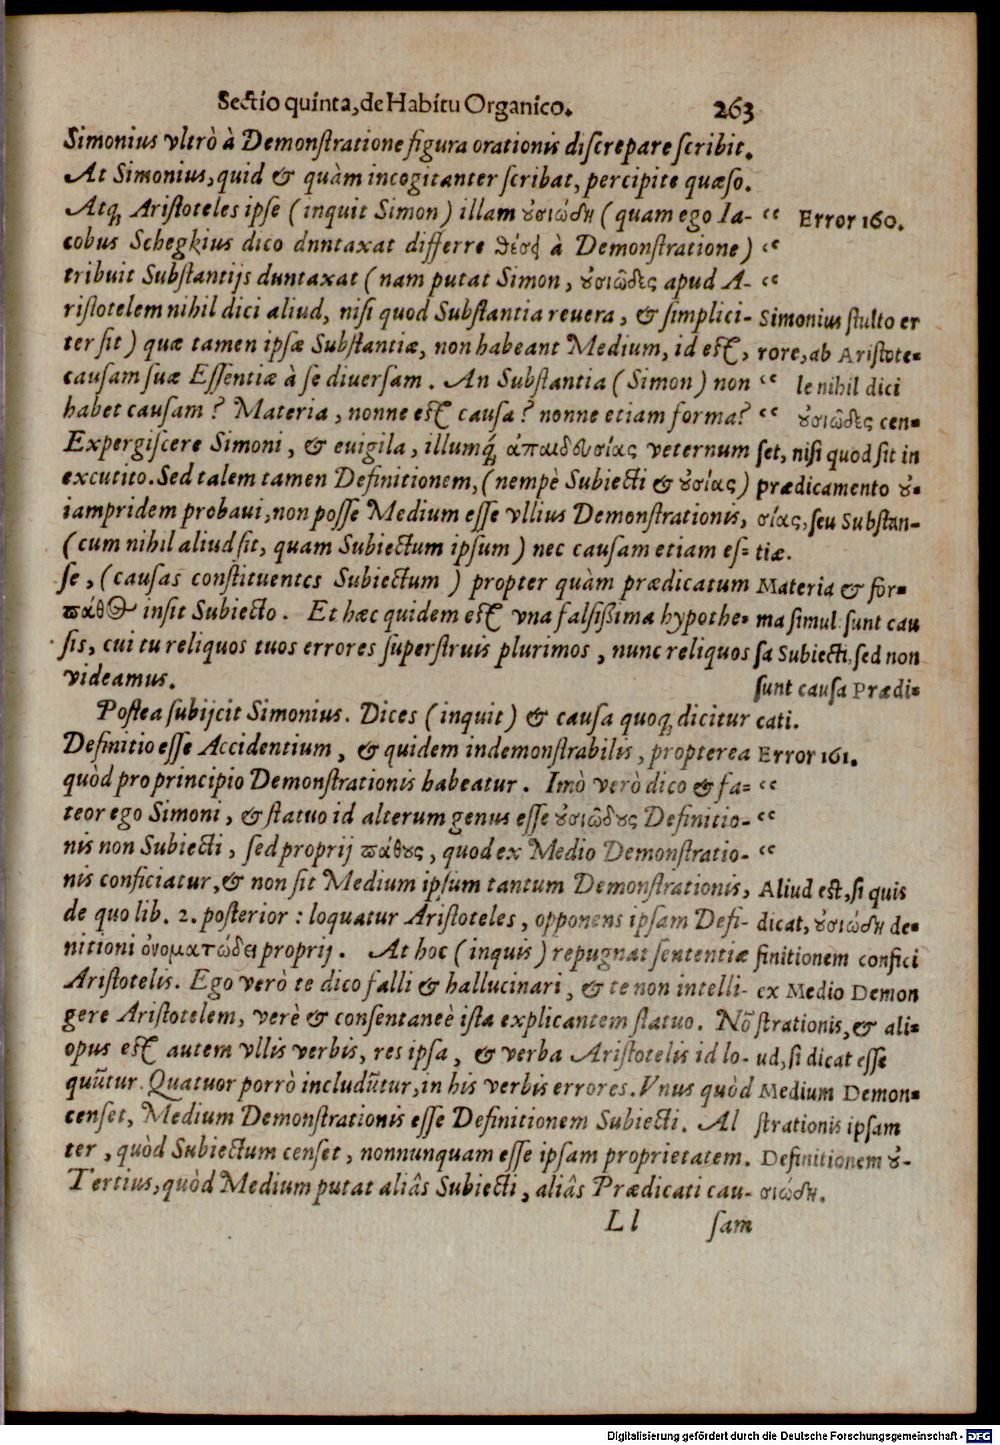 Sectio quinta, de Habitu Organico. 263
Simonius vltrò à Demonstratione figura orationis discrepare scribit.
At Simonius, quid & quàm incogitanter scribat, percipite quæso.
Atq; Aristoteles ipse (inquit Simon) illam ουσιώδη (quam ego Ia-
cobus Schegkius dico dnntaxat differre θέσει à Demonstratione)
tribuit Substantijs duntaxat (nam putat Simon, ουσιῶδες apud A-
ristotelem nihil dici aliud, nisi quod Substantia reuera, & simplici-
ter sit) quæ tamen ipsæ Substantiæ, non habeant Medium, id est,
causam suæ Essentiæ à se diuersam. An Substantia (Simon) non
habet causam? Materia, nonne est causa? nonne etiam forma?
Expergiscere Simoni, & euigila, illumq́; ἀπαιδευσίας veternum
excutito. Sed talem tamen Definitionem, (nempè Subiecti & ουσίας)
iampridem probaui, non posse Medium esse vllius Demonstrationis,
(cum nihil aliud sit, quam Subiectum ipsum) nec causam etiam es-
se, (causas constituentes Subiectum) propter quàm prædicatum
πάθος insit Subiecto. Et hæc quidem est vna falsißima hypothe-
sis, cui tu reliquos tuos errores superstruis plurimos, nunc reliquos
videamus.
Postea subijcit Simonius. Dices (inquit) & causa quoq; dicitur
Definitio esse Accidentium, & quidem indemonstrabilis, propterea
quòd pro principio Demonstrationis habeatur. Imò verò dico & fa-
teor ego Simoni, & statuo id alterum genus esse ουσιώδους Definitio-
nis non Subiecti, sed proprij πάθους, quod ex Medio Demonstratio-
nis conficiatur, & non sit Medium ipsum tantum Demonstrationis,
de quo lib. 2. posterior: loquatur Aristoteles, opponens ipsam Defi-
nitioni ὀνοματώδει proprij. At hoc (inquis) repugnat sententiæ
Aristotelis. Ego verò te dico falli & hallucinari, & te non intelli-
gere Aristotelem, verè & consentaneè ista explicantem statuo. Nō
opus est autem vllis verbis, res ipsa, & verba Aristotelis id lo-
quūtur. Quatuor porrò includūtur, in his verbis errores. Vnus quòd
censet, Medium Demonstrationis esse Definitionem Subiecti. Al
ter, quòd Subiectum censet, nonnunquam esse ipsam proprietatem.
Tertius, quòd Medium putat aliâs Subiecti, aliâs Prædicati cau-
Ll sam
“ Error 160.
“
“
Simonius stulto er
rore, ab Aristote-
“ le nihil dici
“ ουσιῶδες cen-
set, nisi quod sit in
prædicamento ου-
σίας, seu Substan-
tiæ.
Materia & for-
ma simul sunt cau
sa Subiecti, sed non
sunt causa Prædi-
cati.
Error 161.
“
“
“
Aliud est, si quis
dicat, ουσιώδη de-
finitionem confici
ex Medio Demon
strationis, & ali-
ud, si dicat esse
Medium Demon-
strationis ipsam
Definitionem ου-
σιώδη.
Digitalisierung gefördert durch die Deutsche Forschungsgemeinschaft - DFG